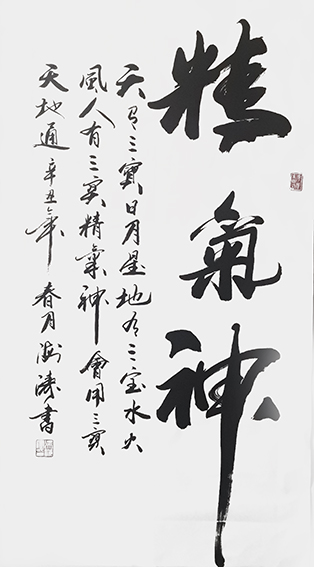 精氣神
天有三寳日月星地有三宝水火
風人有三寳精氣神會用三寳
天地通辛丑年春月涛書